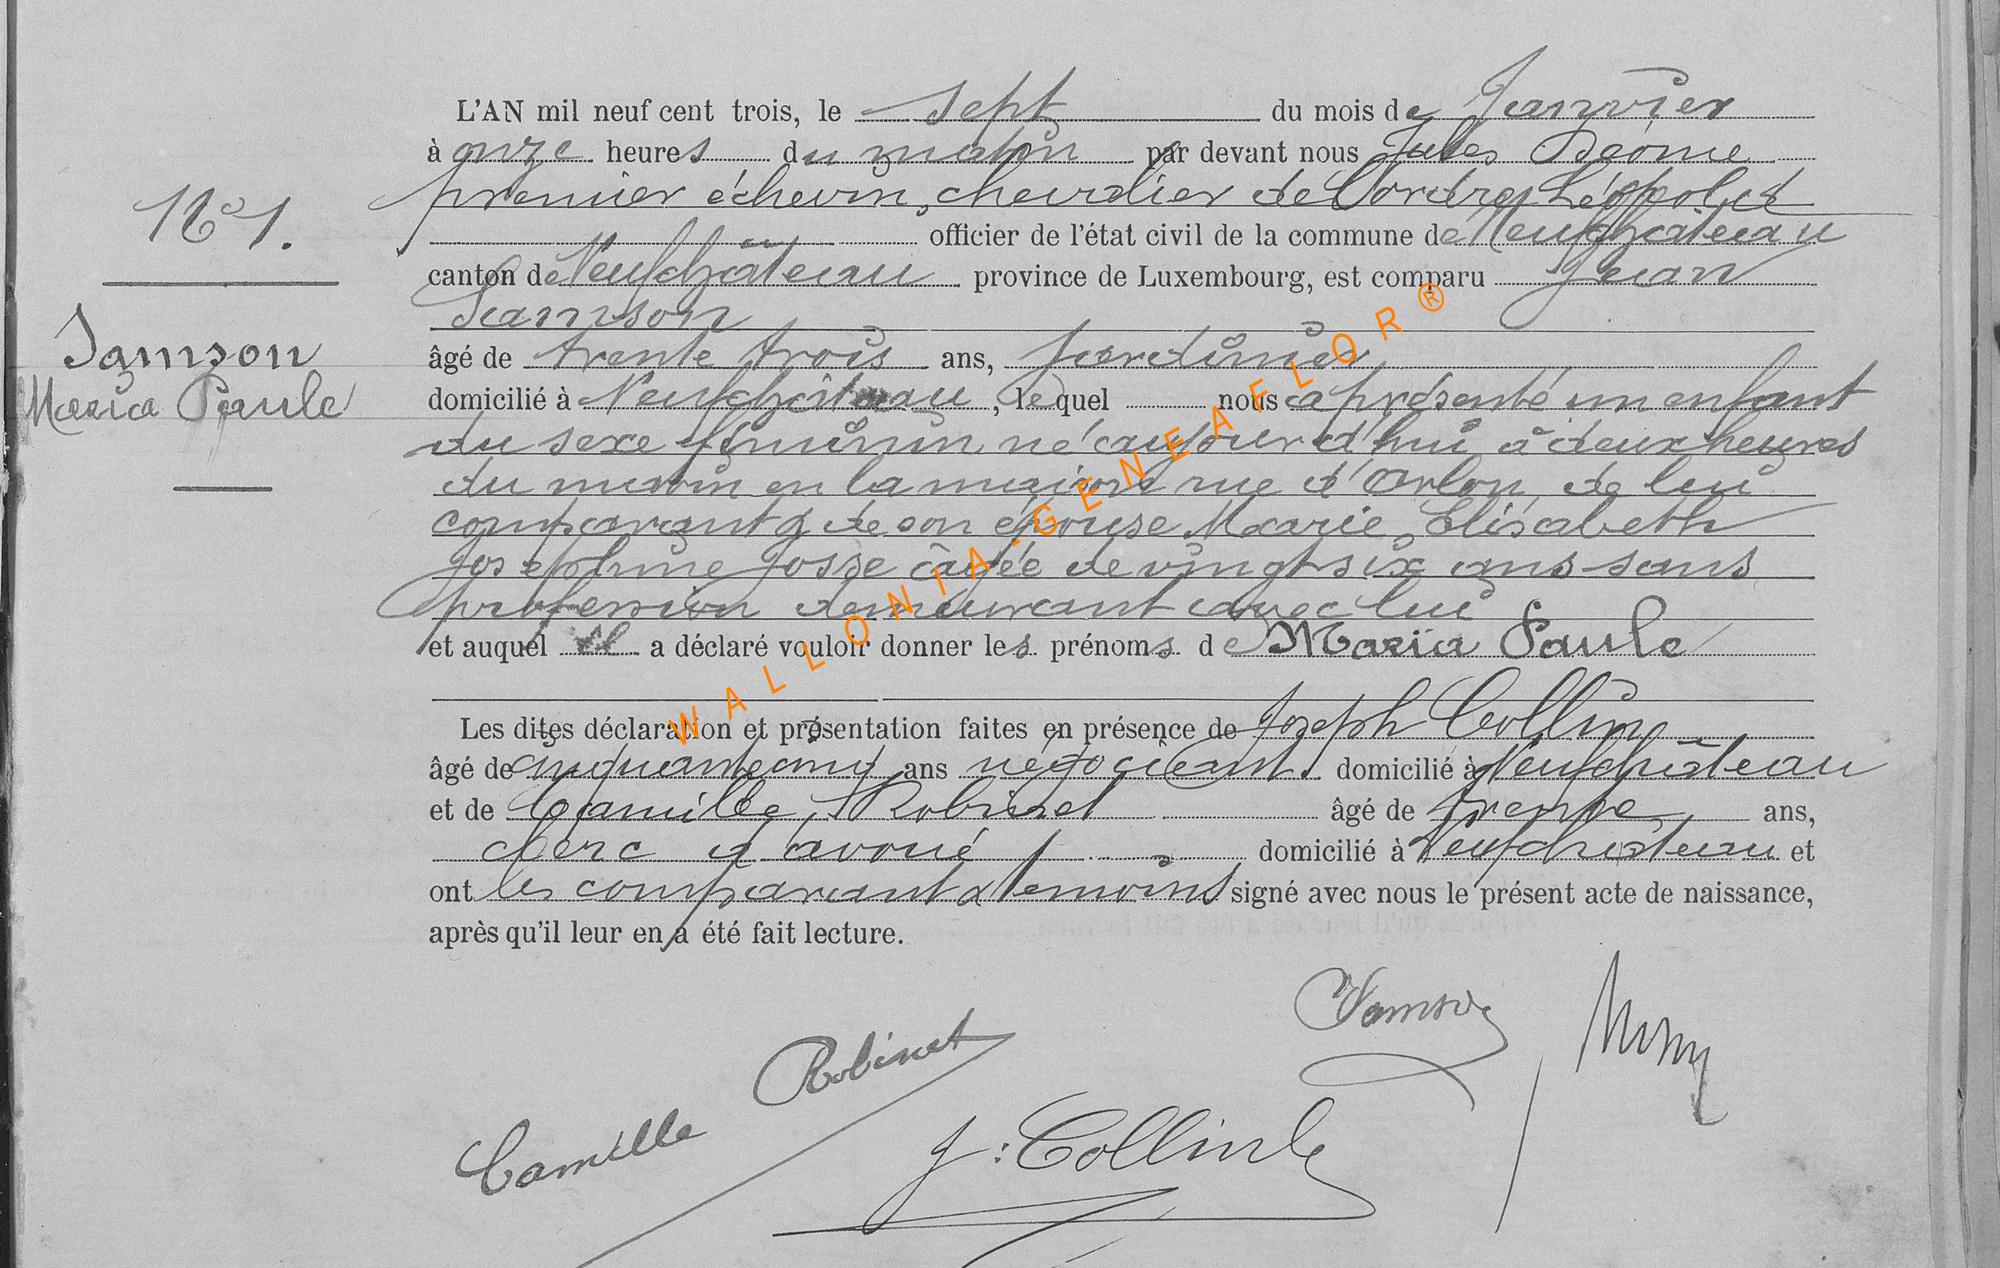 L'AN mil neuf cent trois, le sept du mois de Janvier
à onze heures du matin par devant nous Jules
premier échevin, chevalier de l'ordre Léopold
N° 1.
officier de l'état civil de la commune de Neufchâteau
canton de Neufchâteau province de Luxembourg, est comparu Jean
Samson
Samson
Maria Paule
âgé de trente trois ans, jardinier
domicilié à Neufchâteau, lequel nous a présenté un enfant
du sexe féminin, né aujourd'hui à deux heures
du matin en la maison rue d'Arlon de lui
comparant & de son épouse Marie, Elisabeth
Josephine Josse âgée de vingt six ans sans
profession demeurant avec lui
et auquel il a déclaré vouloir donner les prénoms de Maria Paule
Les dites déclaration et présentation faites en présence de Joseph Collin
âgé de ans négociant domicilié à Neufchâteau
et de Camille Robinet âgé de trente ans,
clerc d'avoué domicilié à Neufchâteau et
ont les comparant & témoins signé avec nous le présent acte de naissance,
après qu'il leur en a été fait lecture.
Samson
Camille Robinet
J. Collin
WALLONIA-GENEAFLOR®